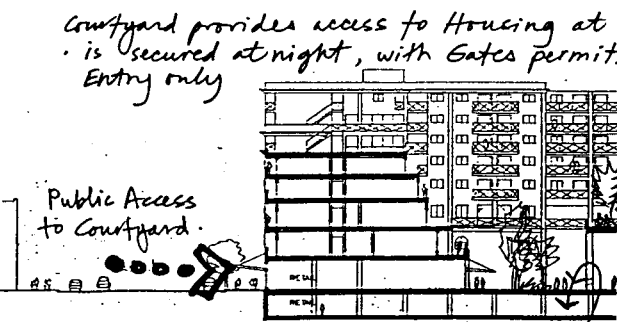 Courtyard provides access to Housing at
· is secured at night, with Gates permit
Entry only
Public Access
to Courtyard.
RETAIL
RETAIL